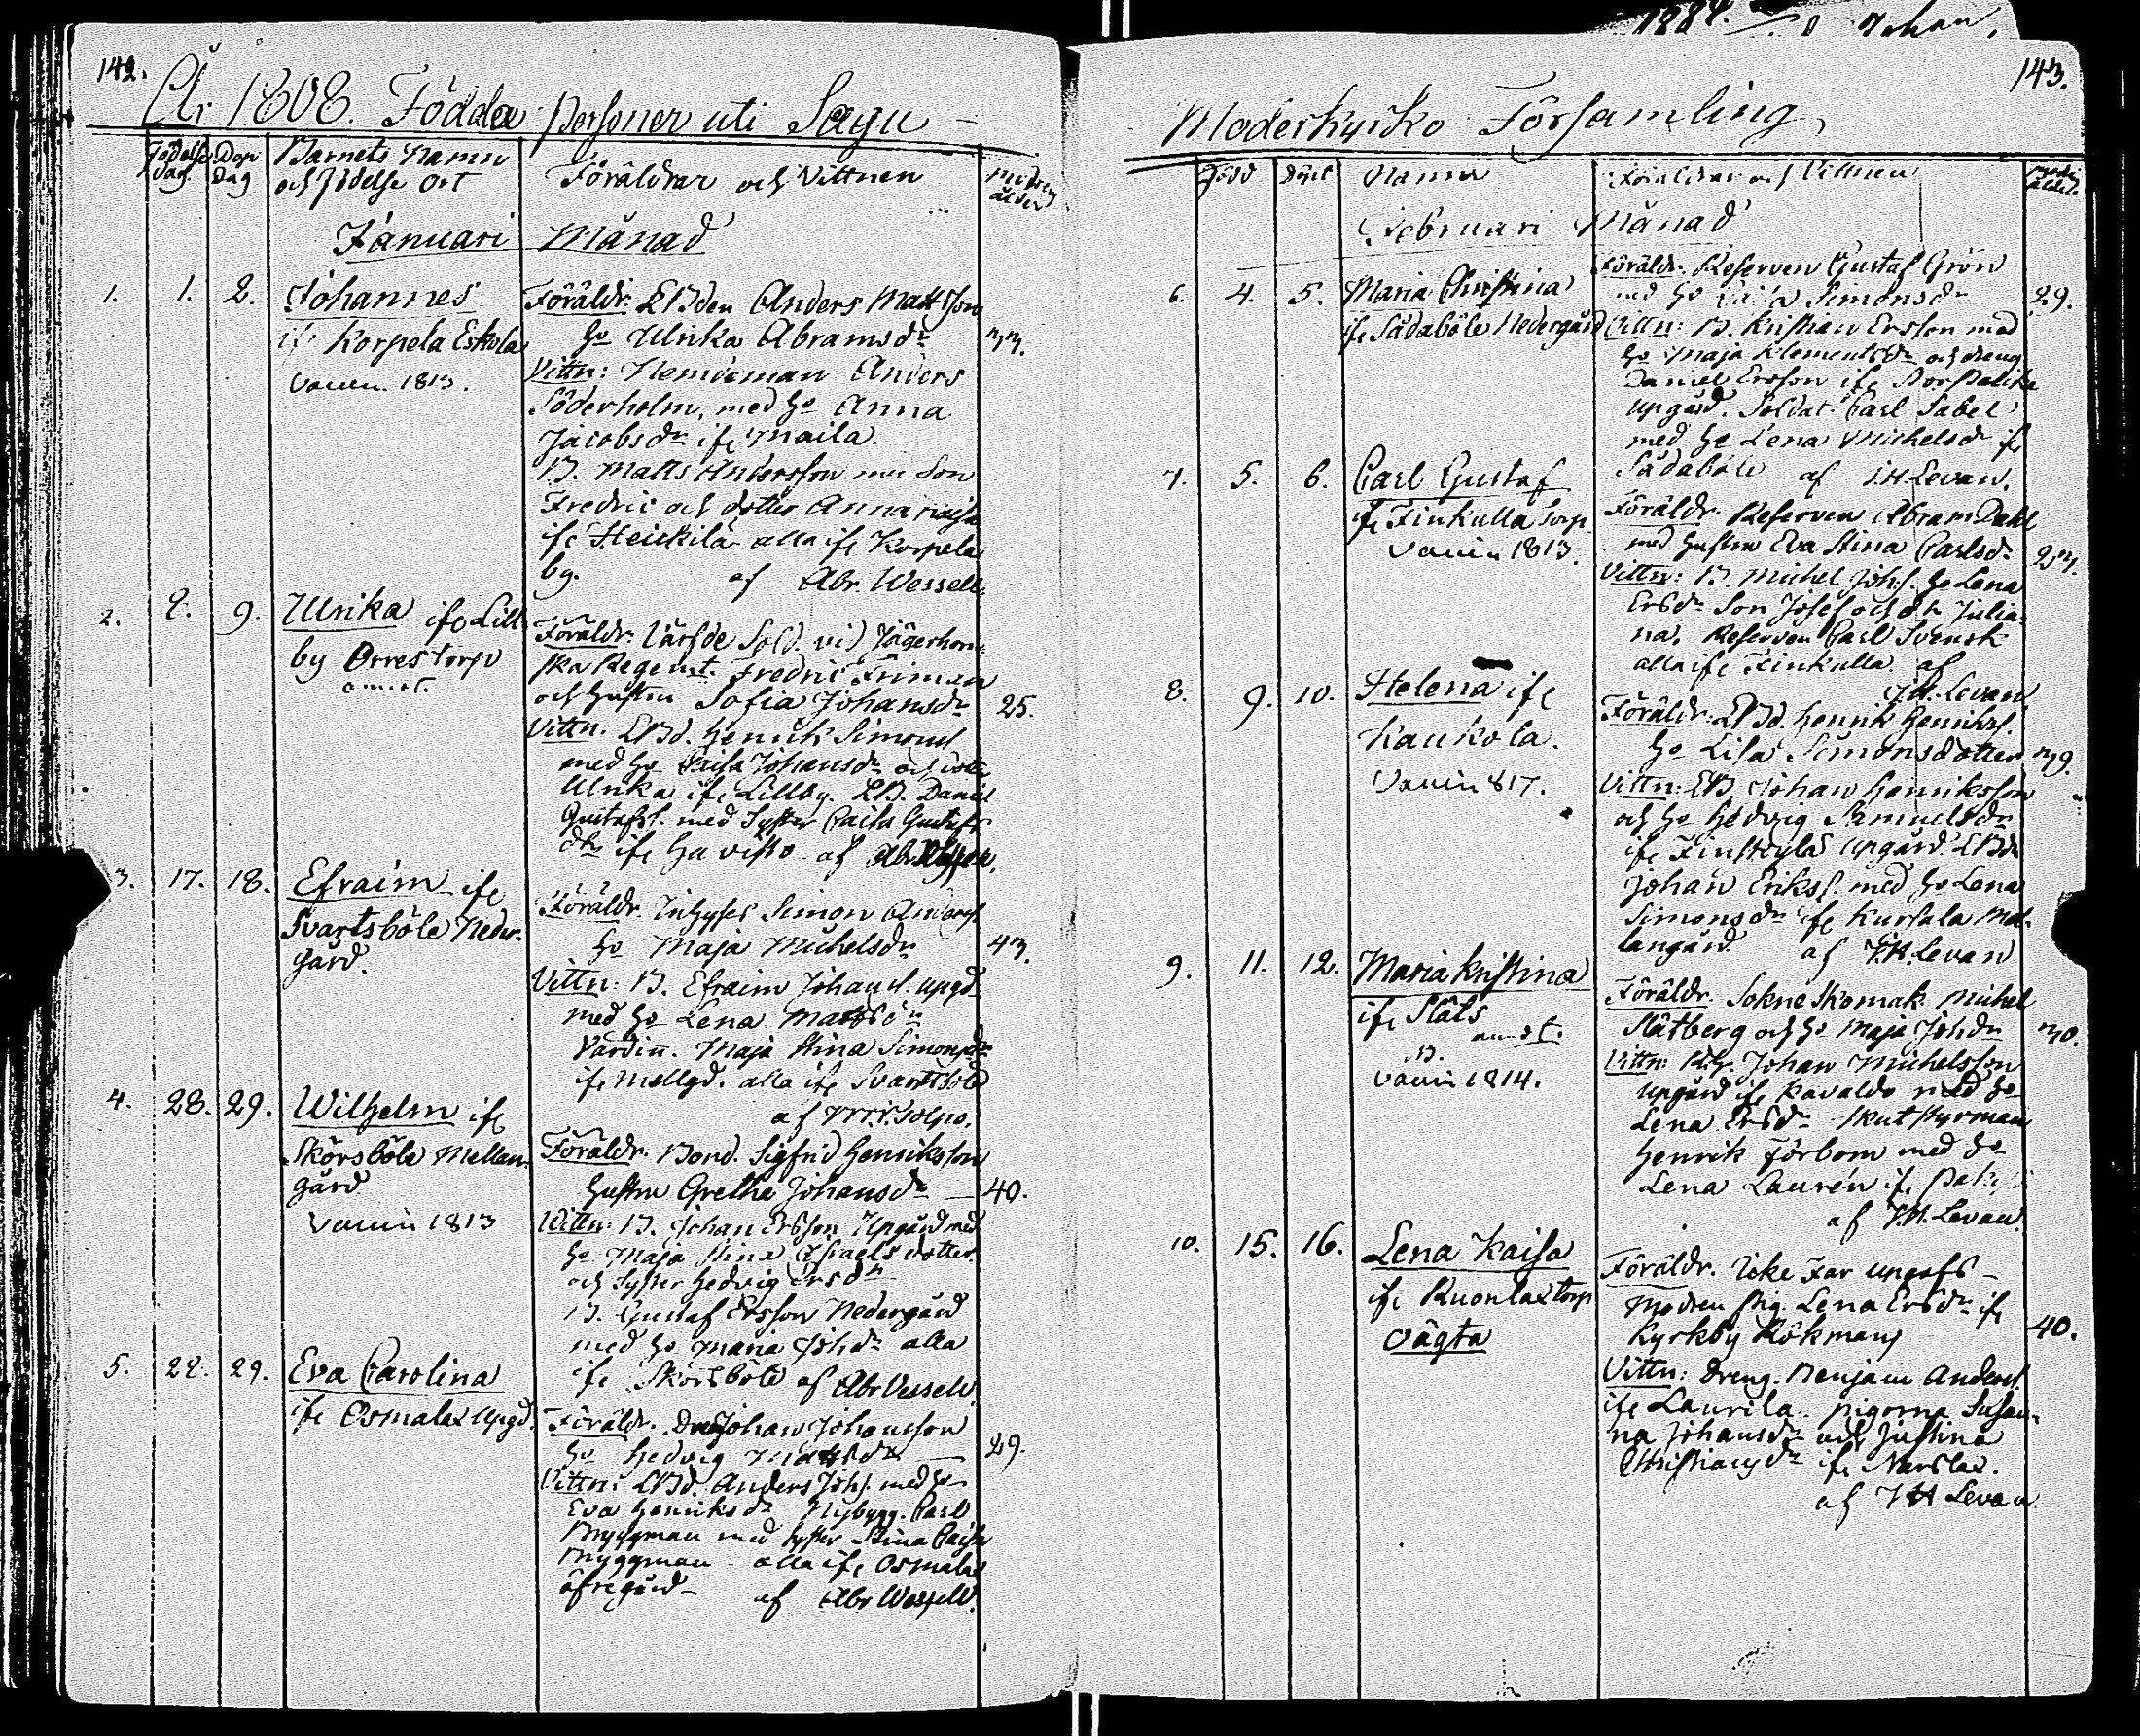 142.
År 1808. Födda Personer uti Sagu
Födelse Dag
Dop Dag
Barnets Namn
och födelse Ort
Föräldrar och Vittnen
modrens ålder
Januari Månad
1. 1. 2. Johannes
ifr Korpela Eskola
Vaccin. 1813.
Föräldr: LBden Anders Mattsson
Ho Ulrika Abramsdr 33.
Vittn: Nemdeman Anders
Söderholm, med Ho Anna
Jacobsdr ifr Maila.
B. Matts Andersson med Son
Fredric och dotter Anna Caisa
ifr Heickilä alla ifr Korpela
by. af Abr. Wessell.
2. 2. 9. Ulrika ifr Lill
by Orrestorp
Föräldr: Värfde Sold. vid Jägerhorn
ska Regemt. Fredric Friman
och Hustru Sofia Johansdr 25.
Vittn. LBd. Henrik Simons
med Ho Caisa Johansdr och dotter
Ulrika ifr Lillby. LB. Daniel
Gustafss. med Syster Caisa Gustafs
dr ifr Havisto af
3. 17. 18. Efraim ifr
Svartsböle Neder
gård.
Föräldr. Inhyses Simon Anderss.
Ho Maja Michelsdr 43.
Vittn: B. Efraim Johans. upgd
med Ho Lena Mattsdr
Värdin. Maja Stina Simonsdr
ifr Mellgd. alla ifr Svartsböle
af
4. 28. 29. Wilhelm ifr
Skörsböle Mellan
gård
Vaccin 1813
Föräldr. Bond. Sigfrid Henriksson
Hustru Grethe Johansdr — 40.
Vittn: B. Johan Ersson Upgård med
Ho Maja Stina Israels dotter
och Syster Hedvig Ersdr
B. Gustaf Ersson Nedergård
med Ho Maria Johdr alla
ifr Skörsböle af Abr Wessell.
5. 22. 29. Eva Carolina
ifr Osmalax Upgd.
Föräldr. Johan Johansson
Ho Hedvig Mattsdr — 29.
Vittn: LBd. Anders Johs. med Ho
Eva Henriksdr Nybygg. Carl
Myggman med Syster Stina Caisa
Myggman alla ifr Osmalax
öfregård af Abr Wessell.
1884. Johan.
143.
Moderkyrko Församling
Född
Döpt
Namn
Föräldrar och Vittnen
modr. ålder.
Februari Månad
6. 4. 5. Maria Christina
ifr Sådaböle Nedergård
Föräldr. Reserven Gustaf Grön
med Ho Caisa Simonsdr 29.
Vittn: B. Kristian Ersson med
Ho Maja Klementsdr och dreng
Daniel Ersson ifr
upgård. Soldat Carl Sabel
med Ho Lena Michelsdr ifr
Sådaböle af J.H. Levan.
7. 5. 6. Carl Gustaf
ifr Finkulla torp
Vaccin 1813.
Föräldr. Reserven Abram Dahl
med Hustru Eva Stina Carlsdr 23.
Vittn: B. Michel Johs. Ho Lena
Ersdr Son Josef och dr Julia
na, Reserven Carl Svensk
alla ifr Finkulla af
J.H. Levan.
8. 9. 10. Helena ifr
Kaukola.
Vaccin 817.
Föräldr: LBd. Henrik Henrikss.
Ho Lisa Simonsdotter 39.
Vittn: LB. Johan Henriksson
och Ho Hedvig Samuelsdr
ifr upgård. LBd
Johan Erikss. med Ho Lena
Simonsdr ifr Kursala Mel
langård af J.H. Levan
9. 11. 12. Maria Kristina
ifr Släts
Vaccin 1814.
Föräldr. Sokne Skomak. Michel
Slätberg och Ho Maja Johdr 30.
Vittn: Johan Michelsson
upgård ifr Kavaldo med Ho
Lena Ersdr Skutstyrman
Henrik Förbom med Ho
Lena Laurén ifr
af J.H. Levan.
10. 15. 16. Lena Kaisa
ifr Ruonlax torp
oägta
Föräldr. Icke Far upgafs —
Modren Pig. Lena Ersdr ifr
Kyrkby Rökmans 40.
Vittn: Dreng. Benjam Anderss.
ifr Laurila. pigorna Susan
na Johansdr och Justina
Christiansdr ifr Narslax.
af J H Levan